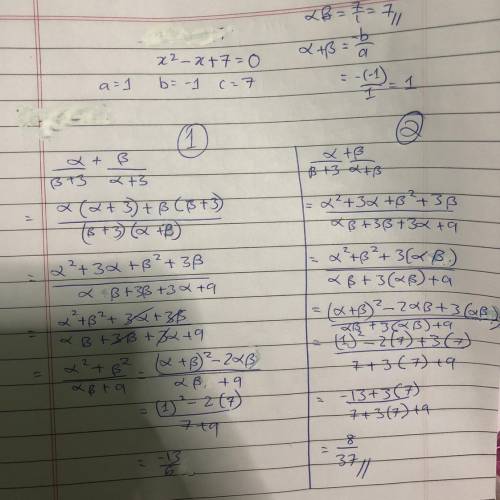 αβ = 7/1 = 7 //
x² - x + 7 = 0
α+β = -b/a
a=1 b=-1 c=7
= -(-1)/1 = 1
①
α/β+3 + β/α+3
= α(α+3)+β(β+3)/(β+3)(α+β)
= α²+3α+β²+3β/αβ+3β+3α+9
= α²+β²+3α+3β/αβ+3β+3α+9
= α²+β²/αβ+9 = (α+β)²-2αβ/αβ+9
= (1)²-2(7)/7+9
= -13/6
②
α/β+3 + β/α+β
= α²+3α+β²+3β/αβ+3β+3α+9
= α²+β²+3(αβ)/αβ+3(αβ)+9
= (α+β)²-2αβ+3(αβ)/αβ+3(αβ)+9
= (1)²-2(7)+3(7)/7+3(7)+9
= -13+3(7)/7+3(7)+9
= 8/37 //